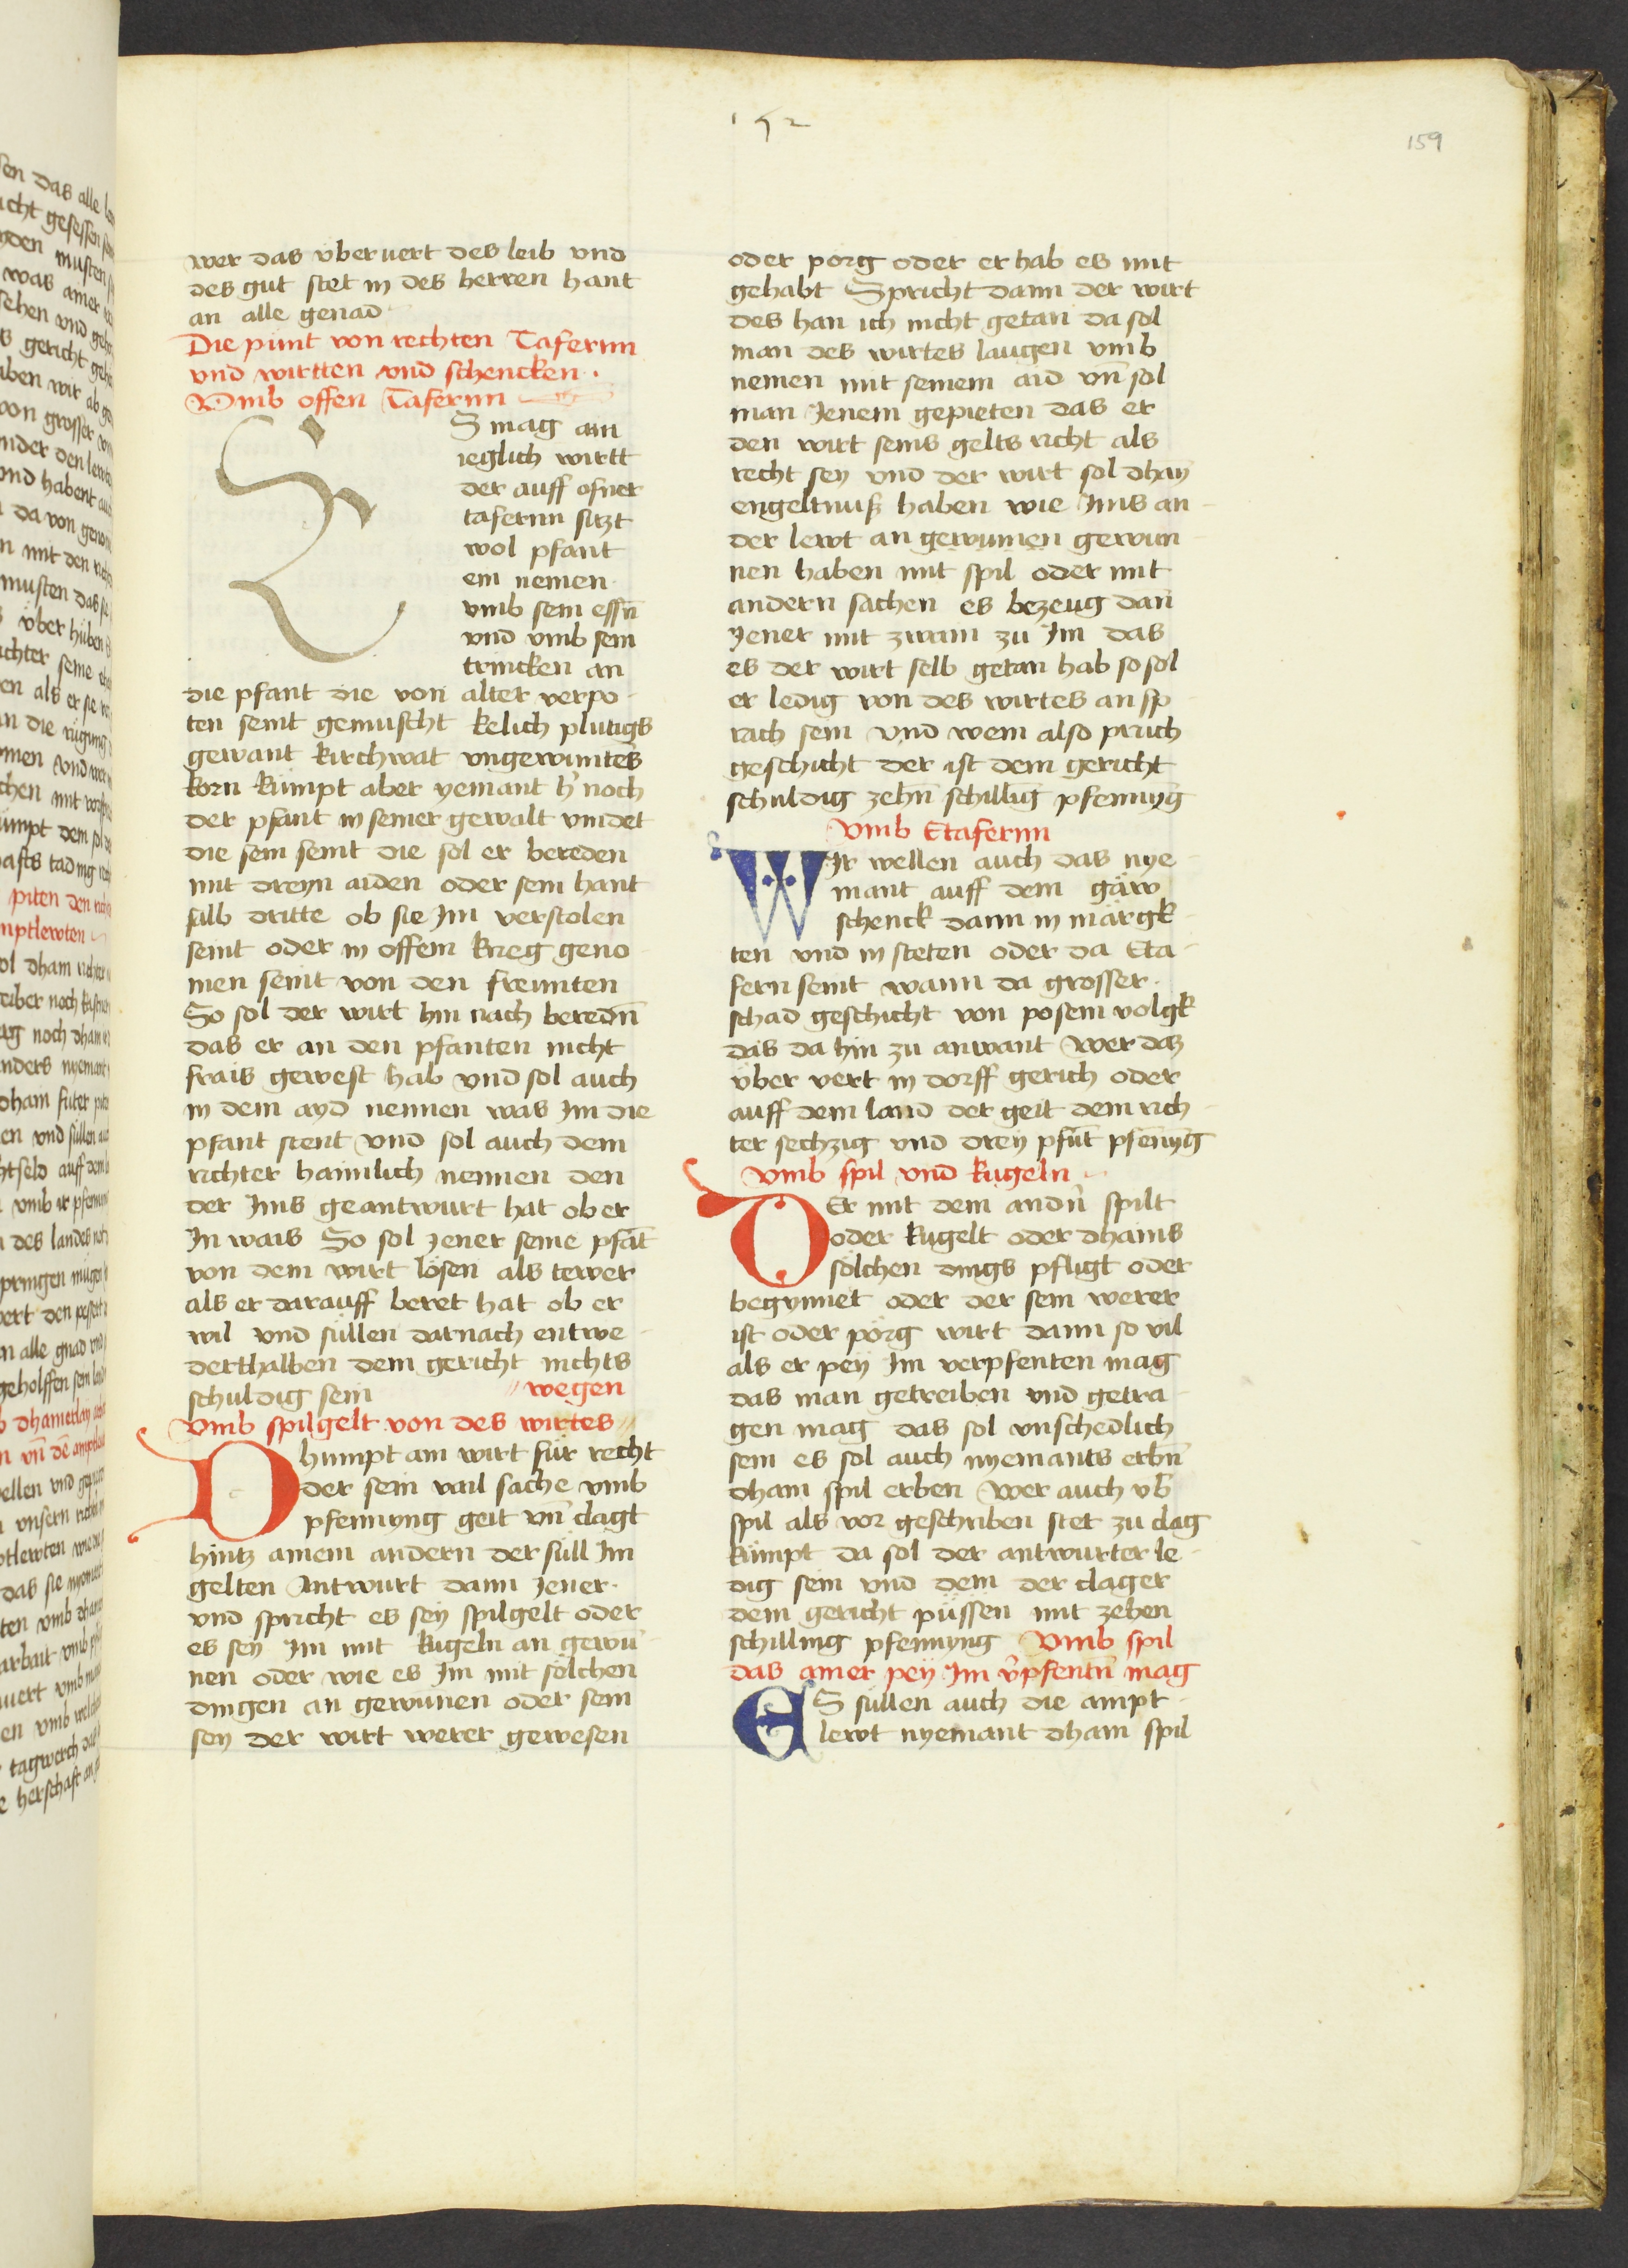 152
159
wer das vber uert des leib vnd
des gut stet in des herren hant
an alle genad
Die punt von rechten Tafernn
vnd wirtten vnd schencken.
Vmb offen Tafernn
ES mag ain
ieglich wirtt
der auff ofner
tafernn sitzt
wol pfant
ein nemen
vmb sein essn̄
vnd vmb sein
trincken an
die pfant die von alter verpo-
ten seint gemuscht kelich plutigs
gewant kirchwat vngewintes
korn kumpt aber yemant h' noch
der pfant in seiner gewalt vindet
die sein seint die sol er bereden
mit dreyn aiden oder sein hant
salb dritte ob sie Im verstolen
seint oder in offem krieg geno-
men seint von den freunten
So sol der wirt hin nach beredn̄
das er an den pfanten nicht
frais gewest hab vnd sol auch
in dem ayd nennen was Im die
pfant stent vnd sol auch dem
richter haimlich nennen den
der Ims geantwurt hat ob er
In wais So sol jener seine pfāt
von dem wirt lösen als tewer
als er darauff beret hat ob er
wil vnd süllen darnach entwe-
derthalben dem gericht nichts
schuldig sein // wegen
Vmb spilgelt von des wirtes //
Dhumpt ain wirt für recht
der sein vail sache vmb
pfennyng geit vn̄ clagt
hintz ainem andern der süll Im
gelten Antwurt dann jener.
vnd spricht es sey spilgelt oder
es sey Im mit kugeln an gewū-
nen oder wie es Im mit sölchen
dingen an gewunen oder sein
sey der wirt werer gewesen
oder pörg oder er hab es mit
gehabt Spricht dann der wirt
des han ich nicht getan da sol
man des wirtes laugen vmb
nemen mit seinem aid vn̄ sol
man Jenem gepieten das er
den wirt seins gelts richt als
recht sey vnd der wirt sol dhain
engeltnuß haben wie Ims an-
der lewt an gewunnen gewun-
nen haben mit spil oder mit
andern sachen es bezeug dan̄
Jener mit zwain zu Im das
es der wirt selb getan hab so sol
er ledig von des wirtes an sp-
rach sein vnd wem also pruch
geschicht der ist dem gericht
schuldig zehn̄ schillīg pfennyg̅
Vmb Etafernn
WIr wellen auch das nye-
mant auff dem gäw
schenck dann in märgk-
ten vnd in steten oder da Eta-
fern seint wann da grosser.
schad geschicht von posem volgk
das da hin zu anwant Wer daz
vber vert in dorff gerich oder
auff dem land der geit dem rich-
ter sechzig vnd drey pfūt pfenyg̅
Vmb spil vnd kugeln
DEr mit dem andn̄ spilt
oder kugelt oder dhains
sölchen dings pfligt oder
begynnet oder der sein werer
ist oder pörg wirt dann so vil
als er pey Im verpfenten mag
das man getreiben vnd getra-
gen mag das sol vnschedlich
sein es sol auch nyemants erbn̄
dhain spil erben Wer auch vb̄
spil als vor geschriben stet zu clag
kümpt da sol der antwurter le-
dig sein vnd dem der clager
dem gericht püssen mit zehen
schilling pfennyng Vmb spil
das ainer pey Im v̄pfentn̄ mag
ES süllen auch die ampt-
lewt nyemant dhain spil